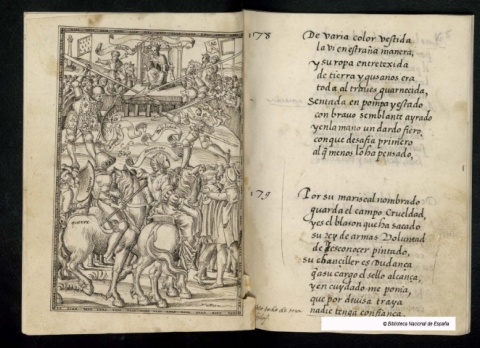 178
De varia color vestida
la vi en estraña manera,
y su ropa entretexida
de tierra y gusanos era
toda al traves guarnecida,
Sentada en pompa y estado
con bravo semblante ayrado
y en la mano un dardo fiero,
con que desafia primero
al q̃ menos lo ha pensado,
179
Por su mariscal nombrado
guarda el campo Crueldad,
y es el blason que ha sacado
su rey de armas Voluntad
de desconocer pintado,
su chanciller es Mudança
q̃ a su cargo el sello alcança,
y en cuydado me ponia,
que por divisa traya
nadie tenga confiança
© Biblioteca Nacional de España